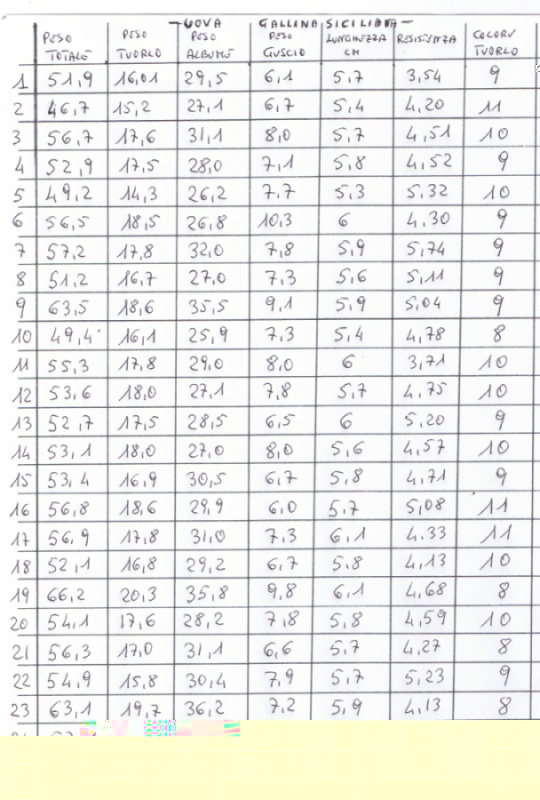 — UOVA GALLINA SICILIANA —
PESO TOTALE PESO TUORLO PESO ALBUME PESO GUSCIO LUNGHEZZA CM RESISTENZA COLORE TUORLO
1 51,9 16,01 29,5 6,1 5,7 3,54 9
2 46,7 15,2 27,1 6,7 5,4 4,20 11
3 56,7 17,6 31,1 8,0 5,7 4,51 10
4 52,9 17,5 28,0 7,1 5,8 4,52 9
5 49,2 14,3 26,2 7,7 5,3 5,32 10
6 56,5 18,5 26,8 10,3 6 4.30 9
7 57,2 17,8 32,0 7,8 5,9 5,74 9
8 51,2 16,7 27,0 7,3 5,6 5,11 9
9 63,5 18,6 35,5 9,1 5,9 5,04 9
10 49,4 16,1 25,9 7,3 5,4 4,78 8
11 55,3 17,8 29,0 8,0 6 3,71 10
12 53,6 18,0 27,1 7,8 5,7 4,75 10
13 52,7 17,5 28,5 6,5 6 5,20 9
14 53,1 18,0 27,0 8,0 5,6 4,57 10
15 53,4 16,9 30,5 6,7 5,8 4,71 9
16 56,8 18,6 29,9 6,0 5,7 5,08 11
17 56,9 17,8 31,0 7,3 6,1 4.33 11
18 52,1 16,8 29,2 6,7 5.8 4,13 10
19 66,2 20,3 35,8 9,8 6,1 4,68 8
20 54,1 17,6 28,2 7,8 5,8 4,59 10
21 56,3 17,0 31,1 6,6 5,7 4,27 8
22 54,9 15,8 30,4 7,9 5,7 5,23 9
23 63,1 19,7 36,2 7,2 5,9 4,13 8